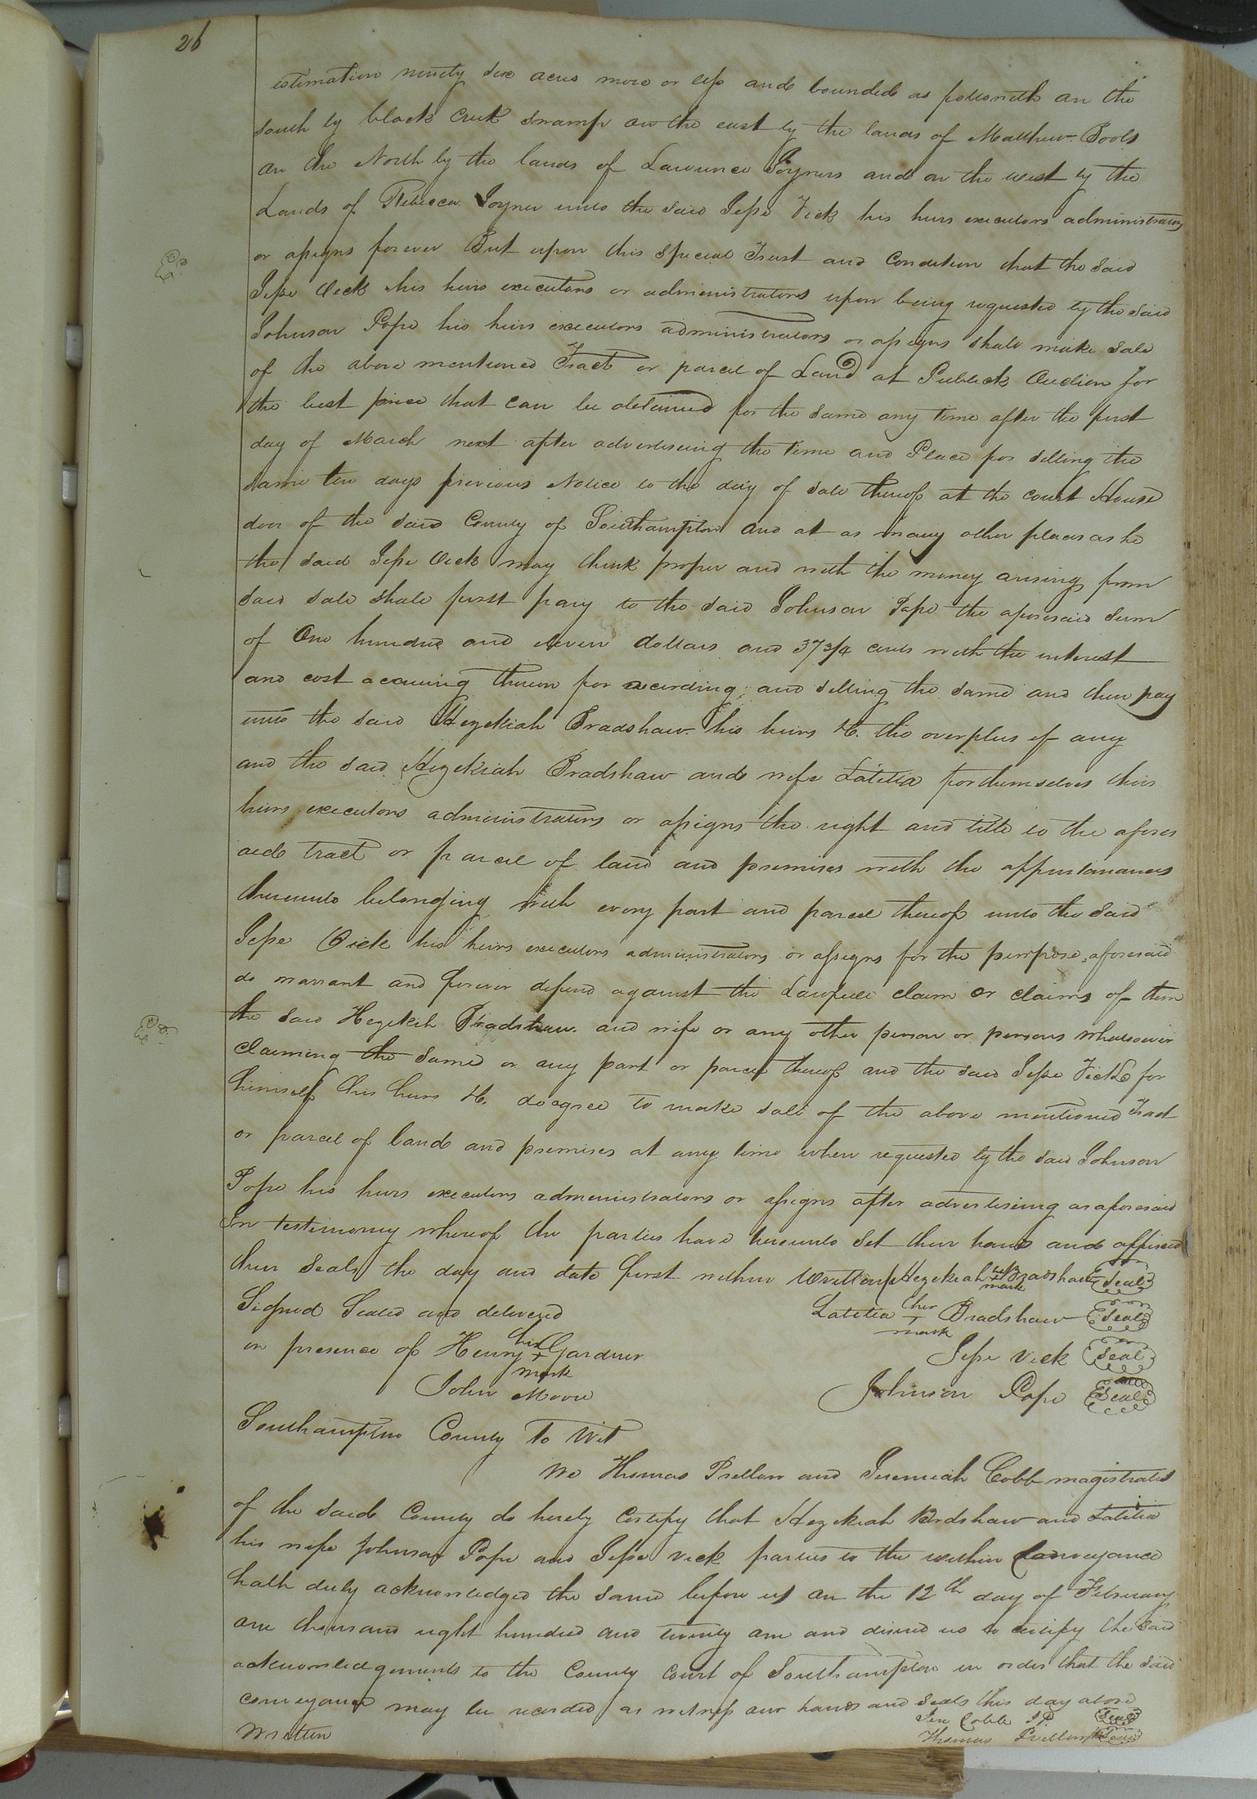 26
estimation ninety six acres more or less and bounded as followeth an the
south by black Creek Swamp on the east by the lands of Matthew Bools
an the North by the lands of Lawrence Joyners and on the west by the
Lands of Rebecca Joyner unto the said Jesse Vick his heirs executors administrators
or assigns forever But upon this special Trust and Condition that the said
Jesse Vick his heirs executors or administrators upon being requested by the said
Johnson Pope his heirs executors administrators or assigns shall make sale
of the above mentioned Tract or parcel of Land at Publick Auction for
the best price that can be obtained for the same any time after the first
day of March next after advertiseing the time and Place for selling the
same ten days previous Notice to the day of sale thereof at the court House
door of the said County of Southampton and at as many other places as he
the said Jesse Vick may think proper and with the money arising from
said sale shall first pay to the said Johnson Pope the aforesaid sum
of One hundred and eleven dollars and 37 3/4 cents with the interest
and cost accruing thereon for recording and selling the same and then pay
unto the said Hezekiah Bradshaw his heirs &c. the overplus if any
and the said Hezekiah Bradshaw and wife Latitia for themselves their
heirs executors administrators or assigns the right and title to the afores
aid tract or parcel of land and premises with the appurtanances
thereunto belonging with every part and parcel thereof unto the said
Jesse Vick his heirs executors administrators or assigns for the purpose aforesaid
do warrant and forever defend against the Lawfull claim or claims of them
the said Hezekiah Bradshaw and wife or any other person or persons whatsoever
claiming the same or any part or parcel thereof and the said Jesse Vick for
himself his heirs &c. do agree to make sale of the above mentioned Tract
or parcel of land and premises at any time when requested by the said Johnson
Pope his heirs executors administrators or assigns after advertiseing as aforesaid
In testimony whereof the parties have hereunto Set their hands and affixed
their Seals the day and date first within Written Hezekiah his + mark Bradshaw Seal
Signed Sealed and delivered Latitia her + mark Bradshaw Seal
in presence of Henry his + mark Gardner Jesse Vick Seal
John Moore Johnson Pope Seal
Southampton County To Wit
We Thomas Pretlow and Jeremiah Cobb magistrates
of the said County do hereby Certify that Hezekiah Bradshaw and Latitia
his wife Johnson Pope and Jesse Vick parties to the within Conveyance
hath duly acknowledged the same before us an the 12th day of February
one thousand eight hundred and twenty one and desired us to certify the said
acknowledgements to the County Court of Southampton in order that the said
conveyance may be recorded as witness our hands and Seals this day above
Written Jere Cobb J.P. Seal
Thomas Pretlow Seal